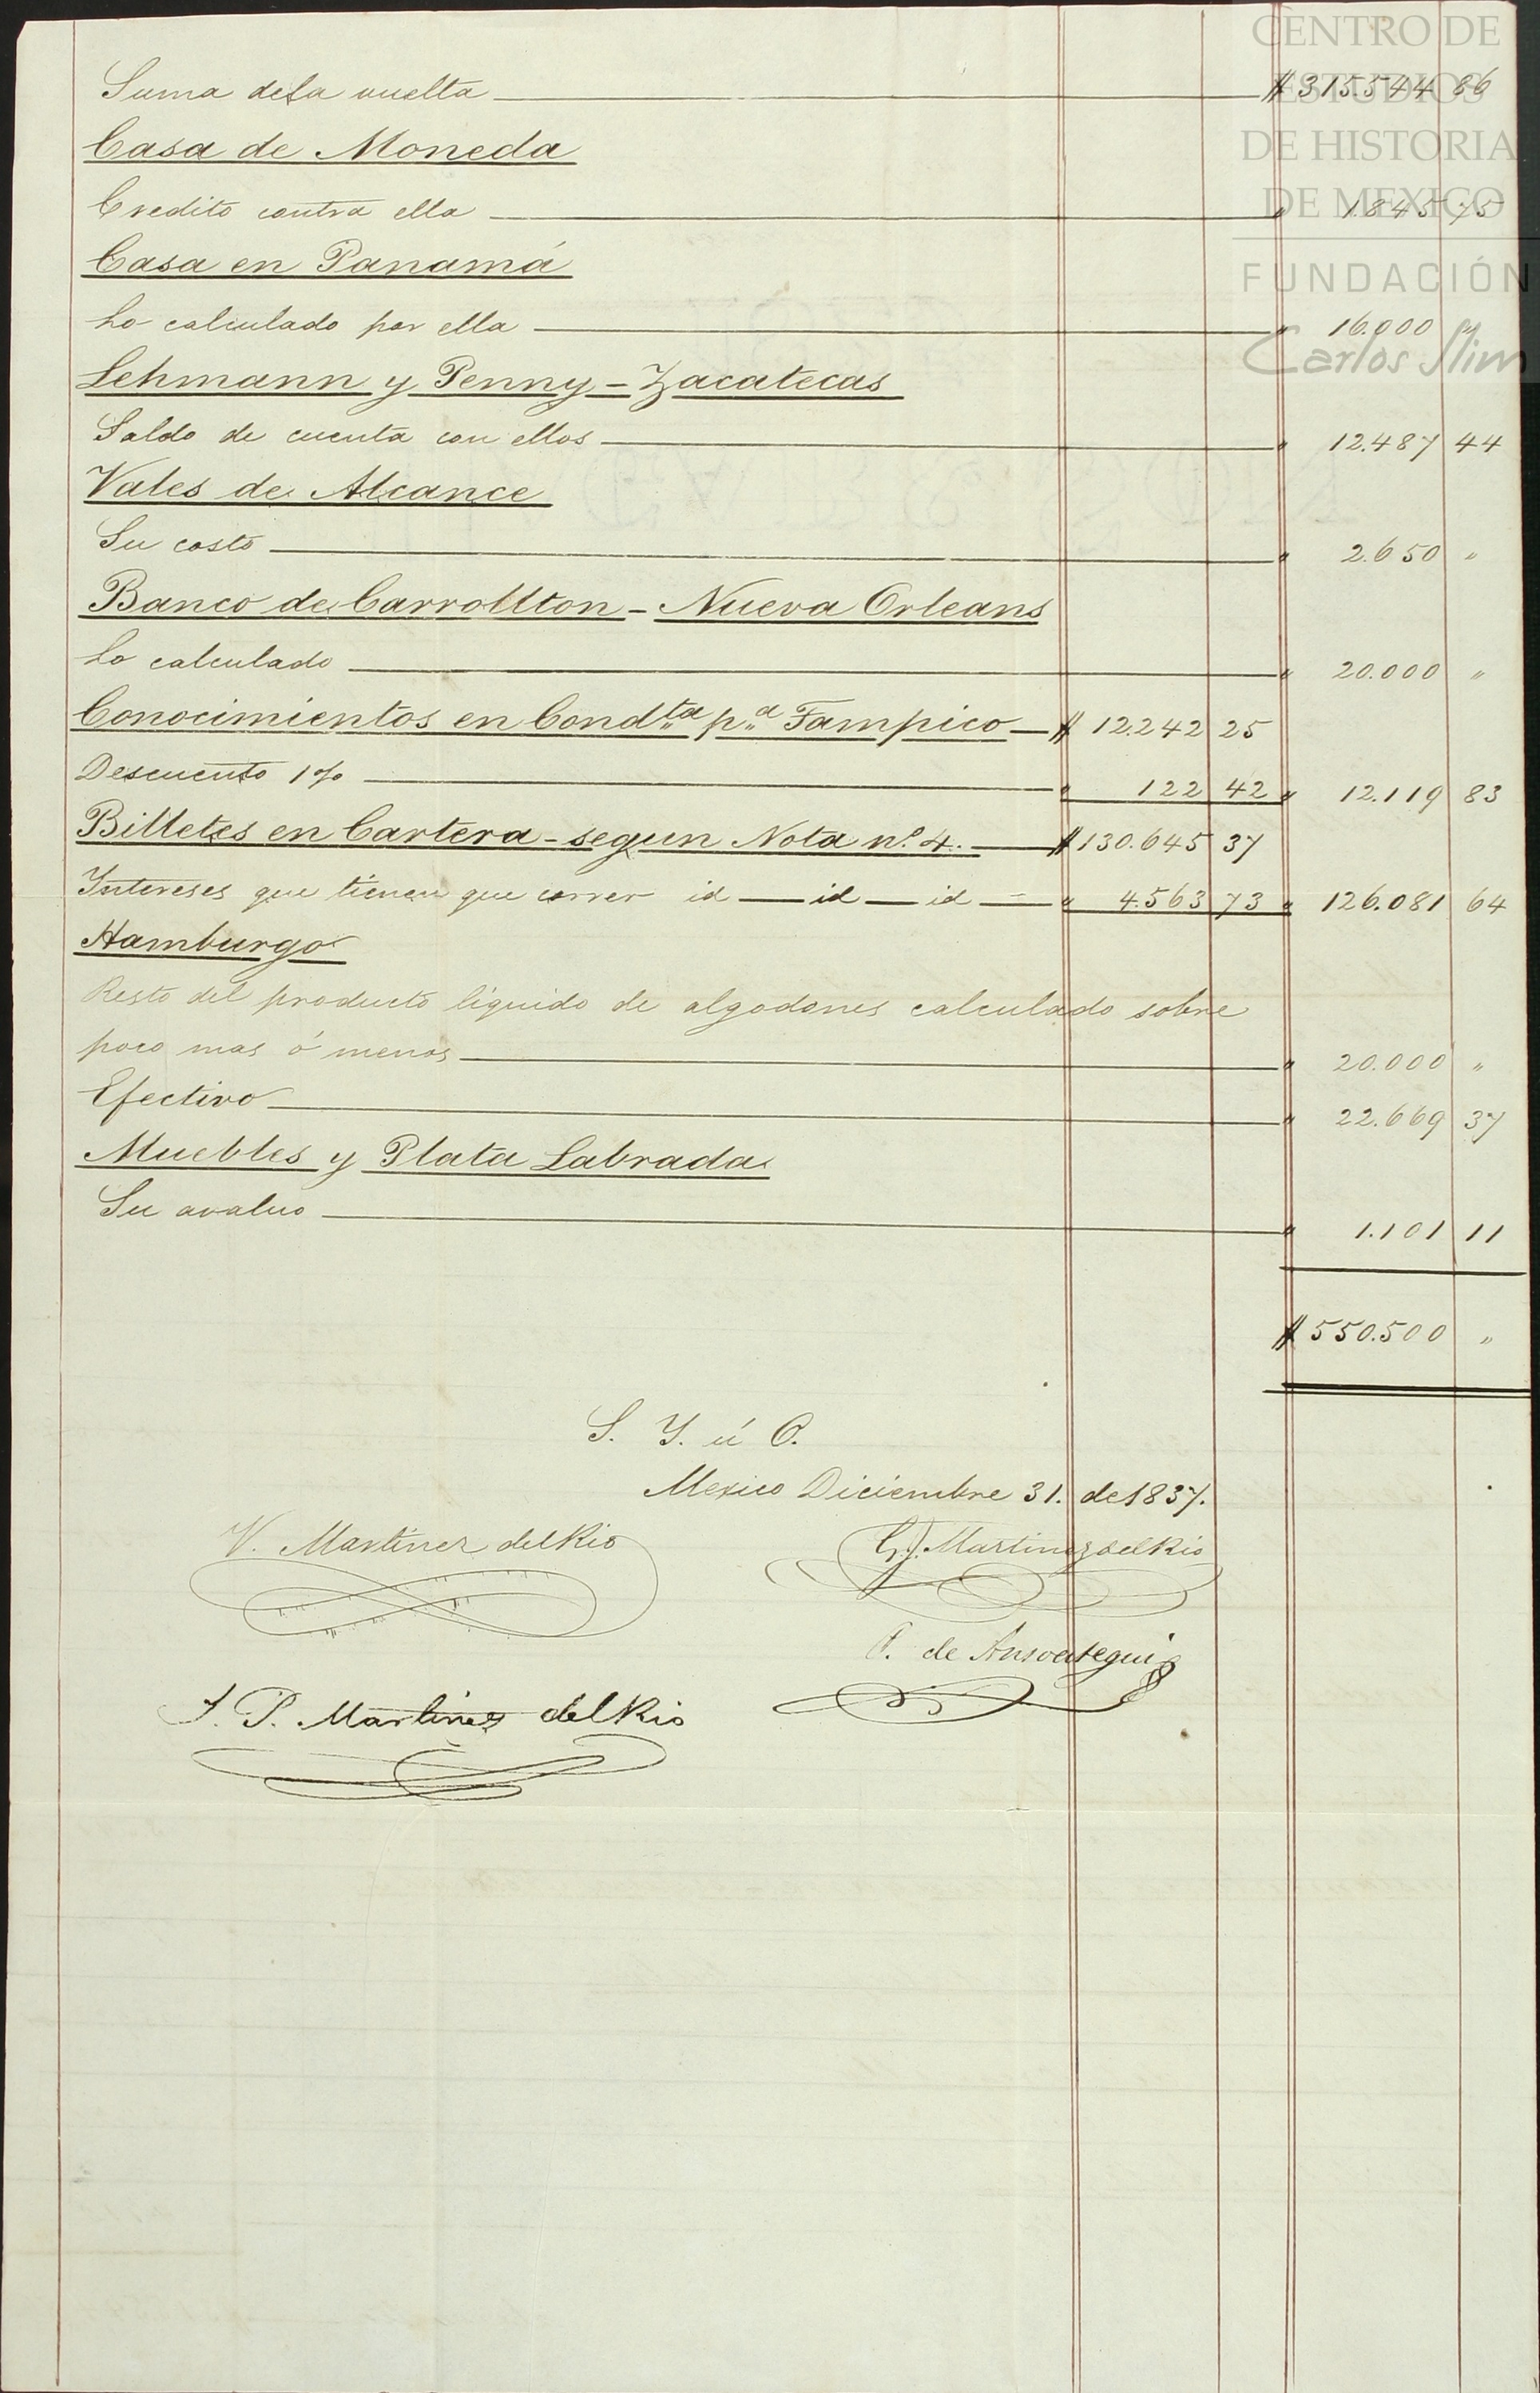 CENTRO DE
ESTUDIOS
DE HISTORIA
DE MEXICO
FUNDACIÓN
Carlos Slim
Suma dela vuelta $ 315.544 86
Casa de Moneda
Credito contra ella " 1.845 75
Casa en Panamá
Lo calculado por ella " 16.000 "
Lehmann y Penny = Zacatecas
Saldo de cuenta con ellos " 12.487 44
Vales de Alcance
Su costo " 2.650 "
Banco de Carrollton - Nueva Orleans
Lo calculado " 20.000 "
Conocimientos en Cond.ta p.a Tampico $ 12.242 25
Descuento 1% " 122 42 " 12.119 83
Billetes en Cartera - segun Nota n.o 4. $ 130.645 37
Intereses que tienen que correr id — id — id = " 4.563 73 " 126.081 64
Hamburgo
Resto del producto liquido de algodones calculado sobre
poco mas ó menos " 20.000 "
Efectivo " 22.669 37
Muebles y Plata Labrada
Su avaluo " 1.101 11
$ 550.500 "
S. Y. ú O.
Mexico Diciembre 31. de 1837.
V. Martinez del Rio G. Martinez del Rio
P. de Ansoategui
J. P. Martinez del Rio